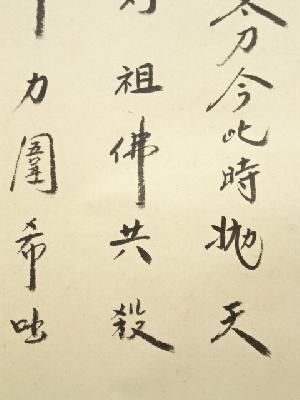 太刀今此時抛天
祖佛共殺
力圍希咄